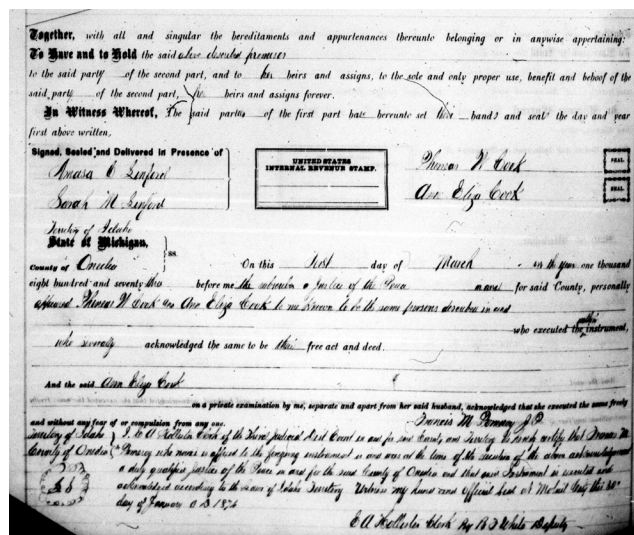 Together, with all and singular the hereditaments and appurtenances thereunto belonging or in anywise appertaining:
To Have and to Hold the said above described premises
to the said party of the second part, and to her heirs and assigns, to the sole and only proper use, benefit and behoof of the
said party of the second part, her heirs and assigns forever.
In Witness Whereof, The said parties of the first part have hereunto set their hands and seals the day and year
first above written,
Signed, Sealed and Delivered in Presence of
UNITED STATES
INTERNAL REVENUE STAMP.
Phineas W Cook SEAL.
Ann Eliza Cook SEAL.
Amasa E Linford
Sarah M Linford
Territory of Idaho
State of Michigan,
County of Oneida ss. On this First day of March in the year one thousand
eight hundred and seventy three before me the subscriber a Justice of the Peace in and for said County, personally
appeared Phineas W Cook and Ann Eliza Cook to me known to be the same persons described in and
who executed the within instrument,
who severally acknowledged the same to be their free act and deed.
And the said Ann Eliza Cook
on a private examination by me, separate and apart from her said husband, acknowledged that she executed the same freely
and without any fear of or compulsion from any one. Francis M Pomeroy J.P.
Territory of Idaho I. E A Hollister Clerk of the Third Judicial Dist Court in and for said County and Territory do hereby certify that Francis M
County of Oneida Pomeroy whose name is affixed to the foregoing instrument is and was at the time of the execution of the above acknowledgement
a duly qualified Justice of the Peace in and for the said County of Oneida and that said Instrument is executed and
acknowledged according to the laws of Idaho Territory. Witness my hand and official Seal at Malad City this
day of January A D 187
E A Hollister Clerk By B F White Deputy